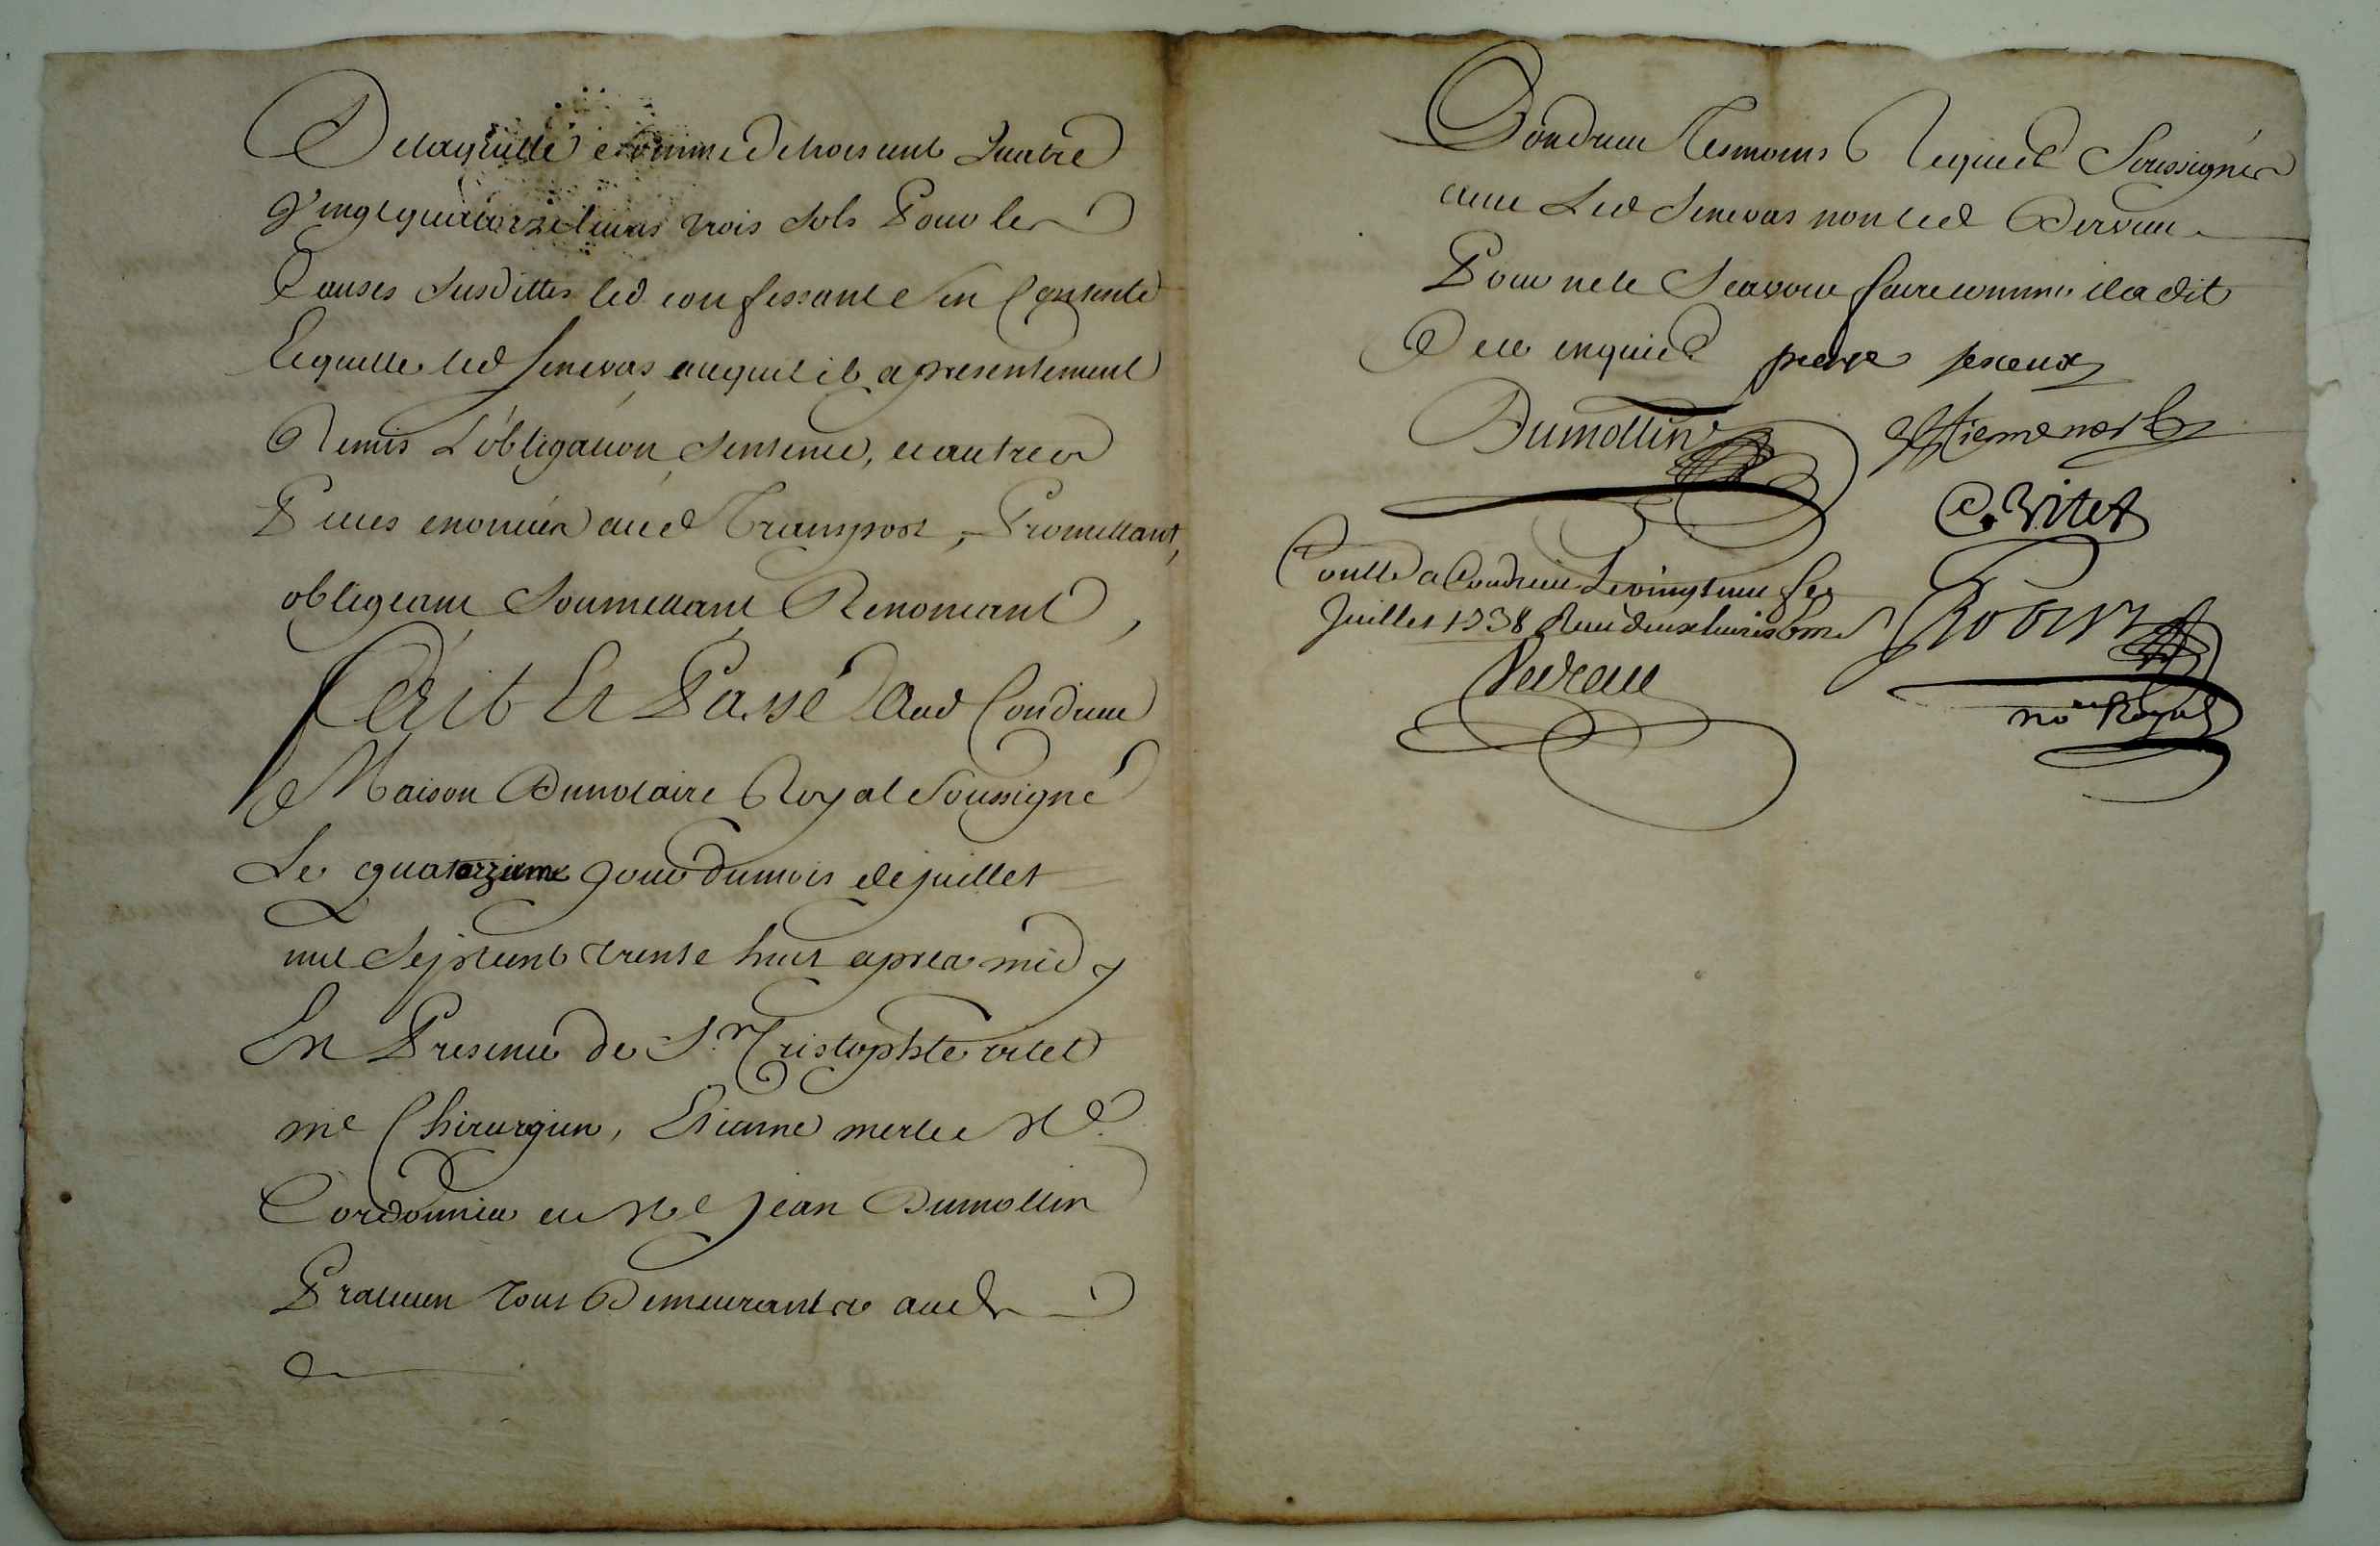 De laquelle somme de trois cent Quatre
Vingt quatorze livres trois sols Pour les
Causes Susdittes led confessant s'en Contente
Et quitte led Senevas auquel il a presentement
Remis L'obligation Sentence, et autres
Pieces enoncées aud Transport, Promettant,
obligeant Soumettant Renonceant,
Fait Et Passé Aud Condrieu
Maison Du notaire Royal Soussigné
Le quatorzieme Jour du mois de juillet
mil Sept cent trente huit apres midy
En Presence de Sr Cristophle vitet
me Chirurgien, Etienne merle Me
Cordonnier et Me Jean Dumollin
Praticien tous Demeurants aud
Condrieu Tesmoins Requis Soussignés
avec Led Senevas non led
Pour ne le Scavoir faire comme il a dit
De ce enquis
Dumollin Etiene merle
C. Vitet
Conllé a Condrieu Le vingt
Juillet 1738 Receu deux livres
nore Royal